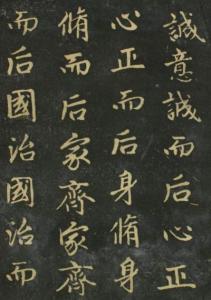 誠意誠而后心正
心正而后身脩身
脩而后家齊家齊
而后國治國治而